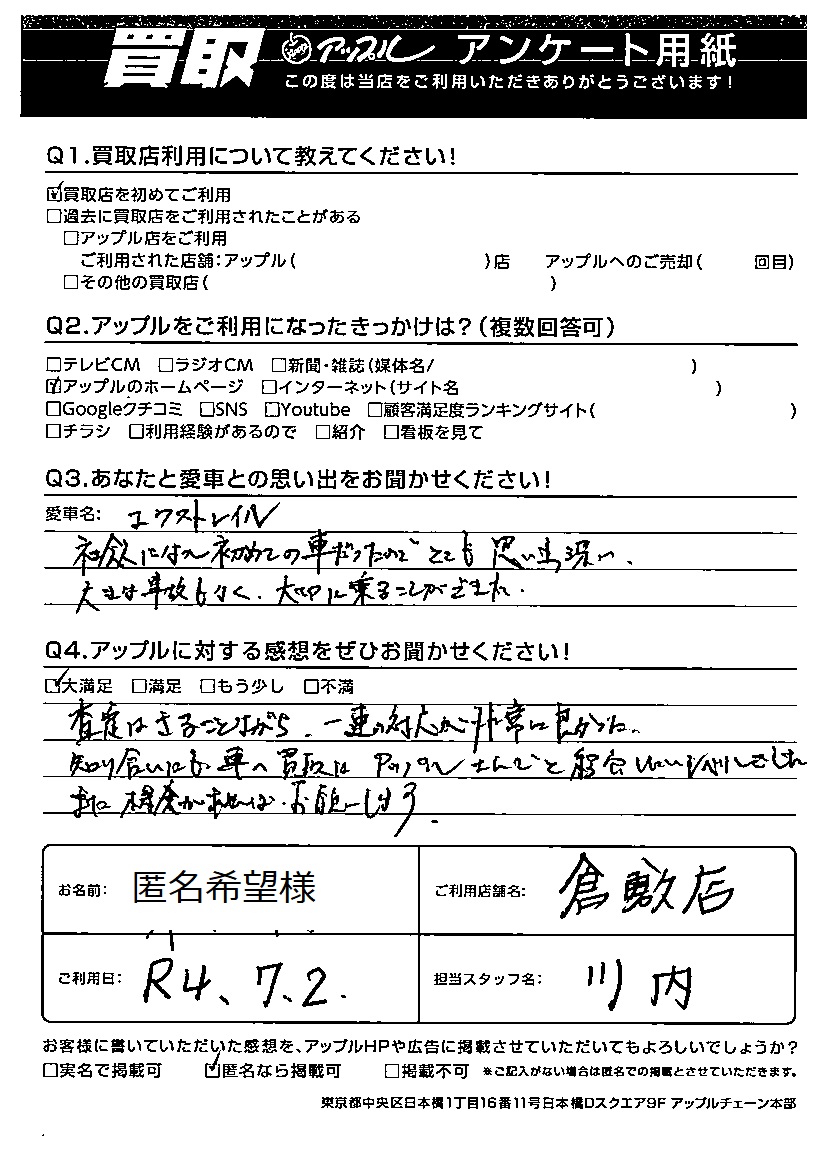 買取 アップル アンケート用紙
この度は当店をご利用いただきありがとうございます!
Q1.買取店利用について教えてください!
☑買取店を初めてご利用
□過去に買取店をご利用されたことがある
□アップル店をご利用
ご利用された店舗:アップル( )店 アップルへのご売却( 回目)
□その他の買取店( )
Q2.アップルをご利用になったきっかけは?(複数回答可)
□テレビCM □ラジオCM □新聞・雑誌(媒体名/ )
☑アップルのホームページ □インターネット(サイト名 )
□Googleクチコミ □SNS □Youtube □顧客満足度ランキングサイト( )
□チラシ □利用経験があるので □紹介 □看板を見て
Q3.あなたと愛車との思い出をお聞かせください!
愛車名: エクストレイル
初めての車だったのでとても思い出深い、
大きな事故もなく、大切に乗ることができました。
Q4.アップルに対する感想をぜひお聞かせください!
☑大満足 □満足 □もう少し □不満
査定はさることながら、一連の対応が非常に良かった。
知り合いにも車の買取はアップルさんで
また機会があればお願いします。
お名前: 匿名希望様
ご利用店舗名: 倉敷店
ご利用日: R4、7、2.
担当スタッフ名: 川内
お客様に書いていただいた感想を、アップルHPや広告に掲載させていただいてもよろしいでしょうか?
□実名で掲載可 ☑匿名なら掲載可 □掲載不可 ※ご記入がない場合は匿名での掲載とさせていただきます。
東京都中央区日本橋1丁目16番11号日本橋Dスクエア9F アップルチェーン本部